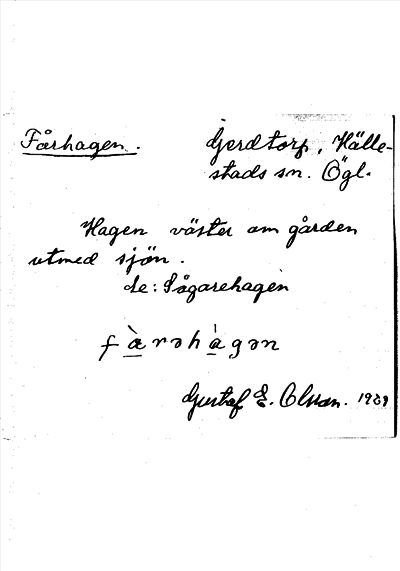 Fårhagen. Gerdtorp, Hälle-
stads sn. Ögl.
Hagen väster om gården
utmed sjön.
Se: Sågarehagen
f à rəhàgən
Gustaf E. Olsson. 1939